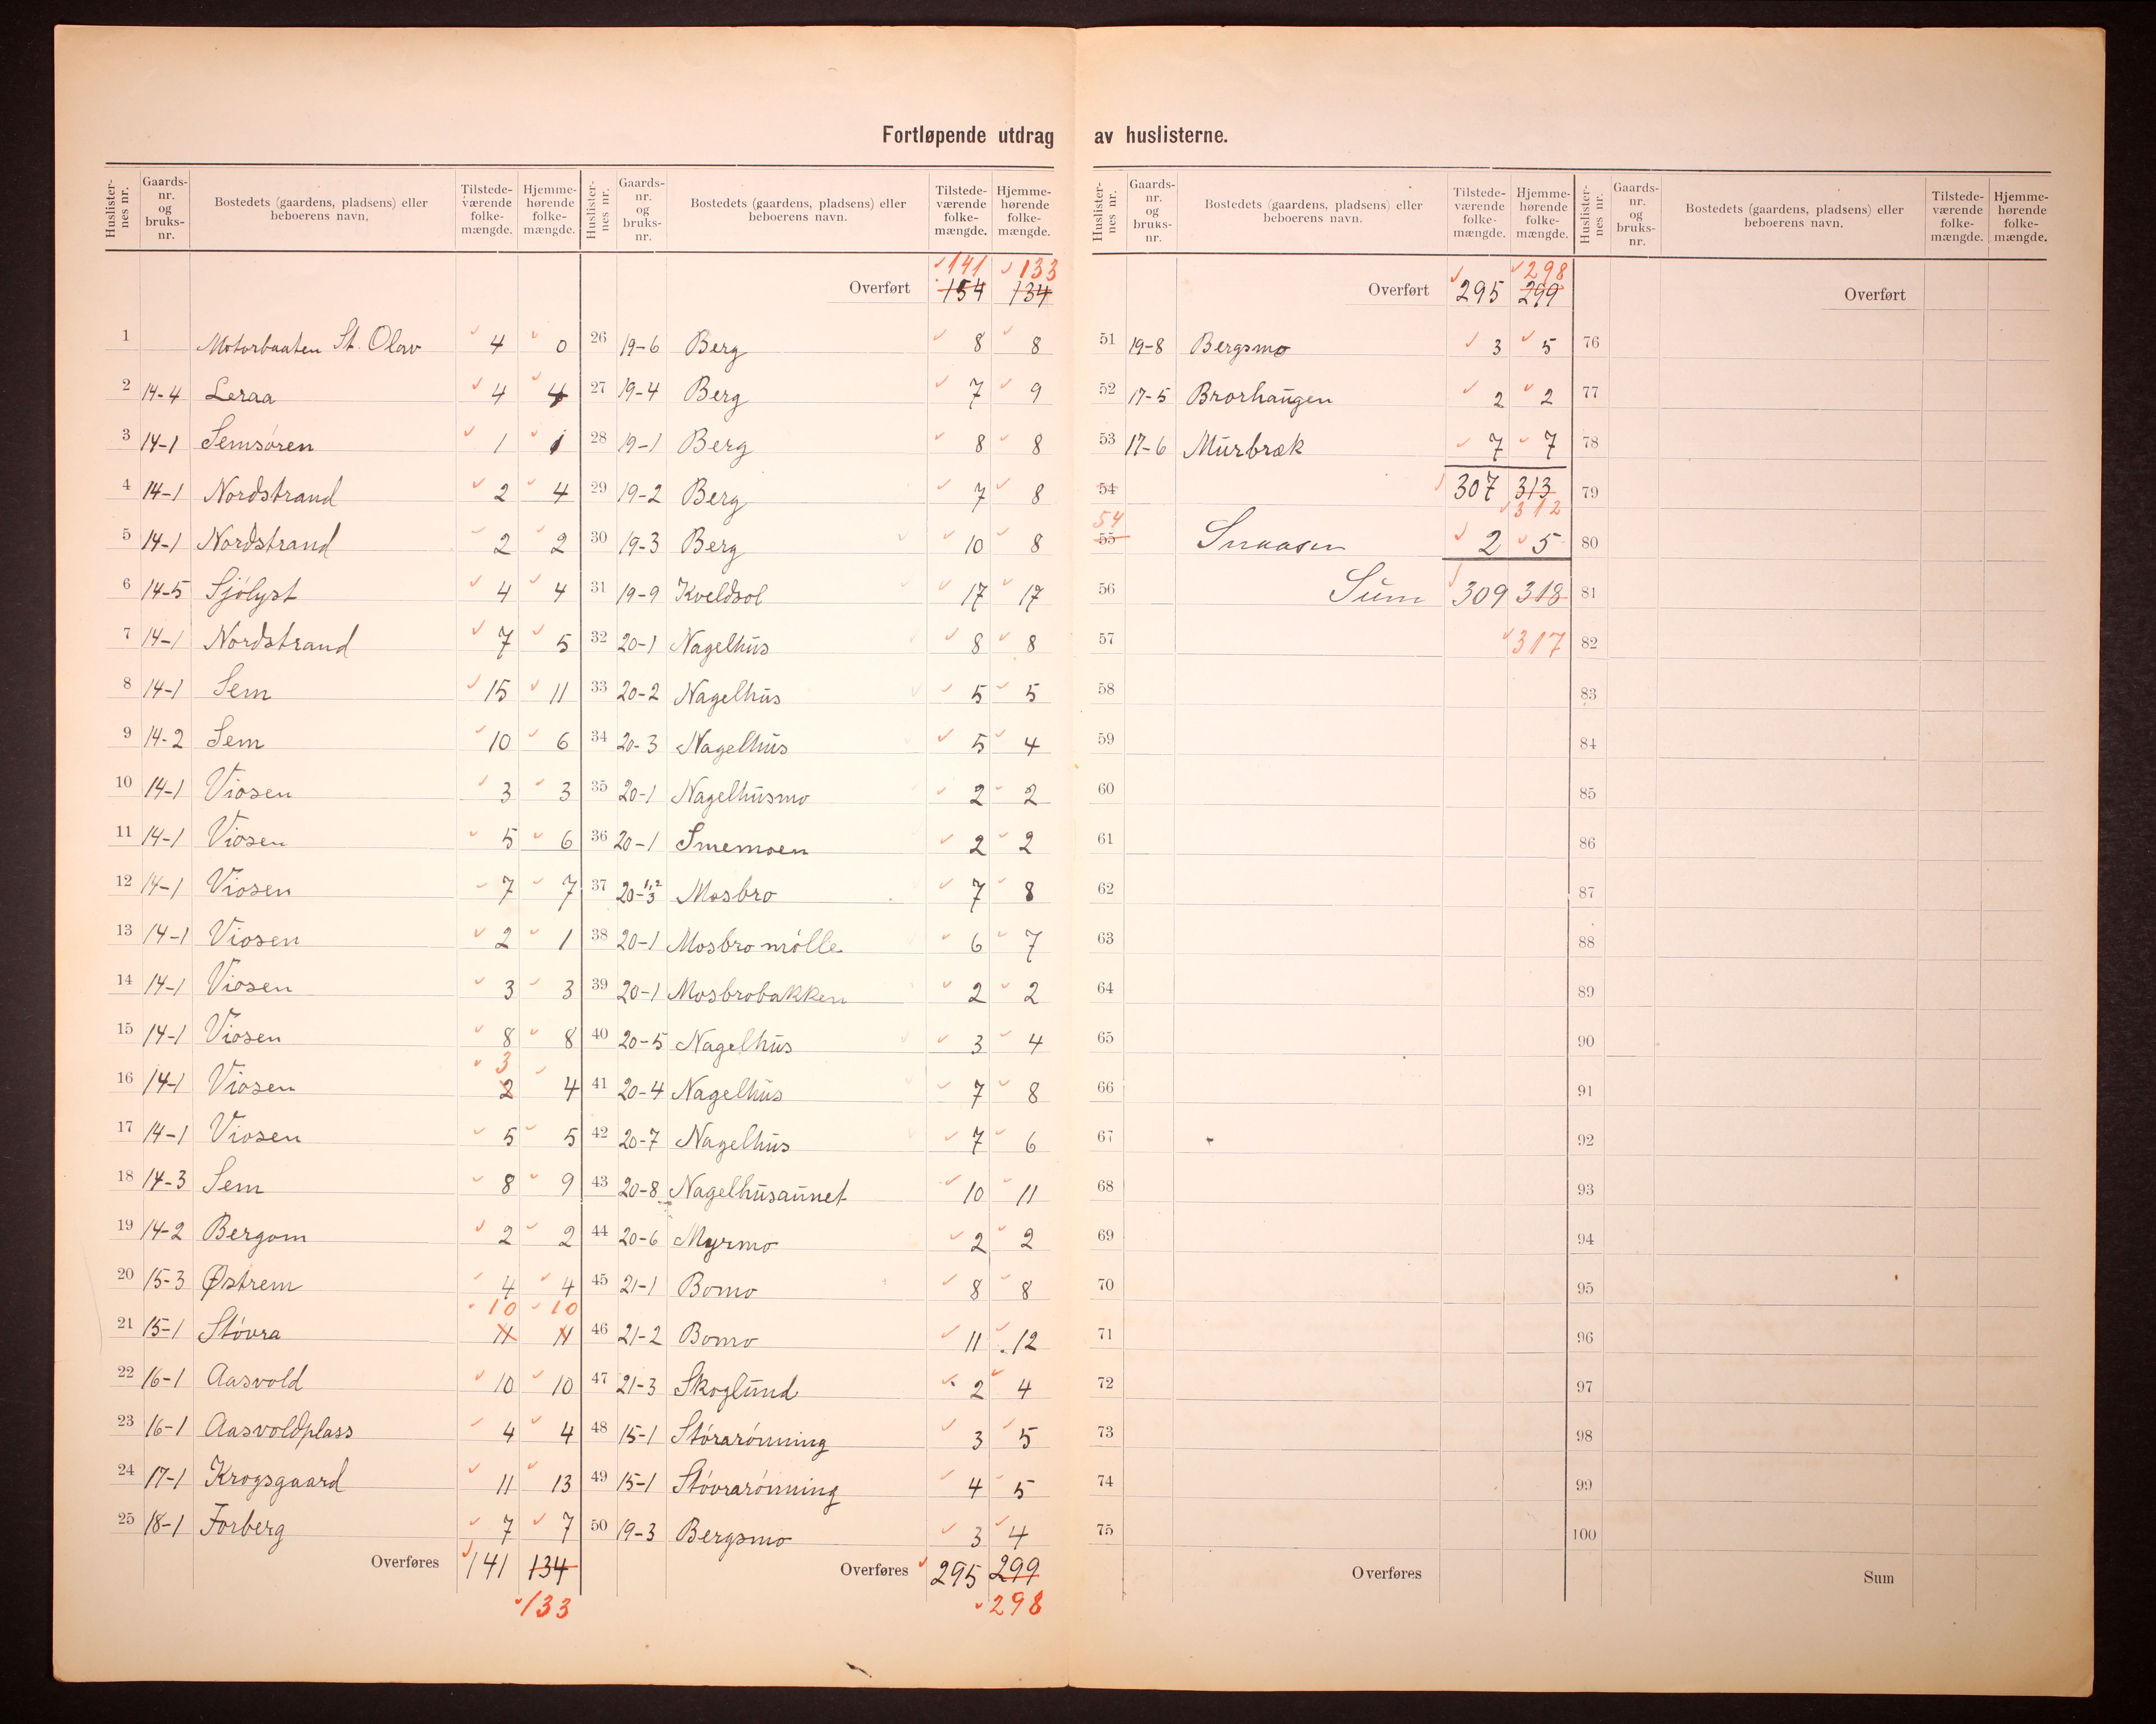 Fortløpende utdrag av huslisterne.
Huslisternes nr. Gaards-nr. og bruks-nr. Bostedets (gaardens, pladsens) eller beboerens navn. Tilstede-værende folke-mængde. Hjemme-hørende folke-mængde.
1 Motorbaaten St. Olav 4 0
2 14-4 Leraa 4 4
3 14-1 Semsøren 1 1
4 14-1 Nordstrand 2 4
5 14-1 Nordstrand 2 2
6 14-5 Sjölyst 4 4
7 14-1 Nordstrand 7 5
8 14-1 Sem 15 11
9 14-2 Sem 10 6
10 14-1 Viosen 3 3
11 14-1 Viosen 5 6
12 14-1 Viosen 7 7
13 14-1 Viosen 2 1
14 14-1 Viosen 3 3
15 14-1 Viosen 8 8
3
16 14-1 Viosen 2 4
17 14-1 Viosen 5 5
18 14-3 Sem 8 9
19 14-2 Bergom 2 2
20 15-3 Østrem 4 4
10 10
21 15-1 Stövra 11 11
22 16-1 Aasvold 10 10
23 16-1 Aasvoldplass 4 4
24 17-1 Krogsgaard 11 13
25 18-1 Forberg 7 7
Overføres 141 134
133
Huslisternes nr. Gaards-nr. og bruks-nr. Bostedets (gaardens, pladsens) eller beboerens navn. Tilstede-værende folke-mængde. Hjemme-hørende folke-mængde.
141 133
Overført 154 134
26 19-6 Berg 8 8
27 19-4 Berg 7 9
28 19-1 Berg 8 8
29 19-2 Berg 7 8
30 19-3 Berg 10 8
31 19-9 Kveldsol 17 17
32 20-1 Nagelhus 8 8
33 20-2 Nagelhus 5 5
34 20-3 Nagelhus 5 4
35 20-1 Nagelhusmo 2 2
36 20-1 Smemoen 2 2
37 20-1,2 3 Mosbro 7 8
38 20-1 Mosbro mölle 6 7
39 20-1 Mosbrobakken 2 2
40 20-5 Nagelhus 3 4
41 20-4 Nagelhus 7 8
42 20-7 Nagelhus 7 6
43 20-8 Nagelhusaunet 10 11
44 20-6 Myrmo 2 2
45 21-1 Bomo 8 8
46 21-2 Bomo 11 12
47 21-3 Skoglund 2 4
48 15-1 Störarönning 3 5
49 15-1 Stövrarönning 4 5
50 19-3 Bergsmo 3 4
Overføres 295 299
298
Huslisternes nr. Gaards-nr. og bruks-nr. Bostedets (gaardens, pladsens) eller beboerens navn. Tilstede-værende folke-mængde. Hjemme-hørende folke-mængde.
298
Overført 295 299
51 19-8 Bergsmo 3 5
52 17-5 Brorhaugen 2 2
53 17-6 Murbræk 7 7
54 307 313
312
54
55 Snaasen 2 5
56 Sum 309 318
57 317
58
59
60
61
62
63
64
65
66
67
68
69
70
71
72
73
74
75
Overføres
Huslisternes nr. Gaards-nr. og bruks-nr. Bostedets (gaardens, pladsens) eller beboerens navn. Tilstede-værende folke-mængde. Hjemme-hørende folke-mængde.
Overført
76
77
78
79
80
81
82
83
84
85
86
87
88
89
90
91
92
93
94
95
96
97
98
99
100
Sum